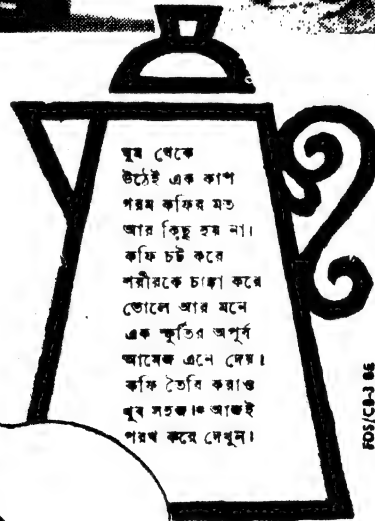 ঘুম থেকে
উঠেই এক কাপ
গরম কফির মত
আর কিছু হয় না।
কফি চট করে
শরীরকে চাঙ্গা করে
তোলে আর মনে
এক স্ফূর্তির অপূর্ব
আমেজ এনে দেয়।
কফি তৈরি করাও
খুব সহজ।* আজই
পরখ করে দেখুন।
FDS/CB-3 BE